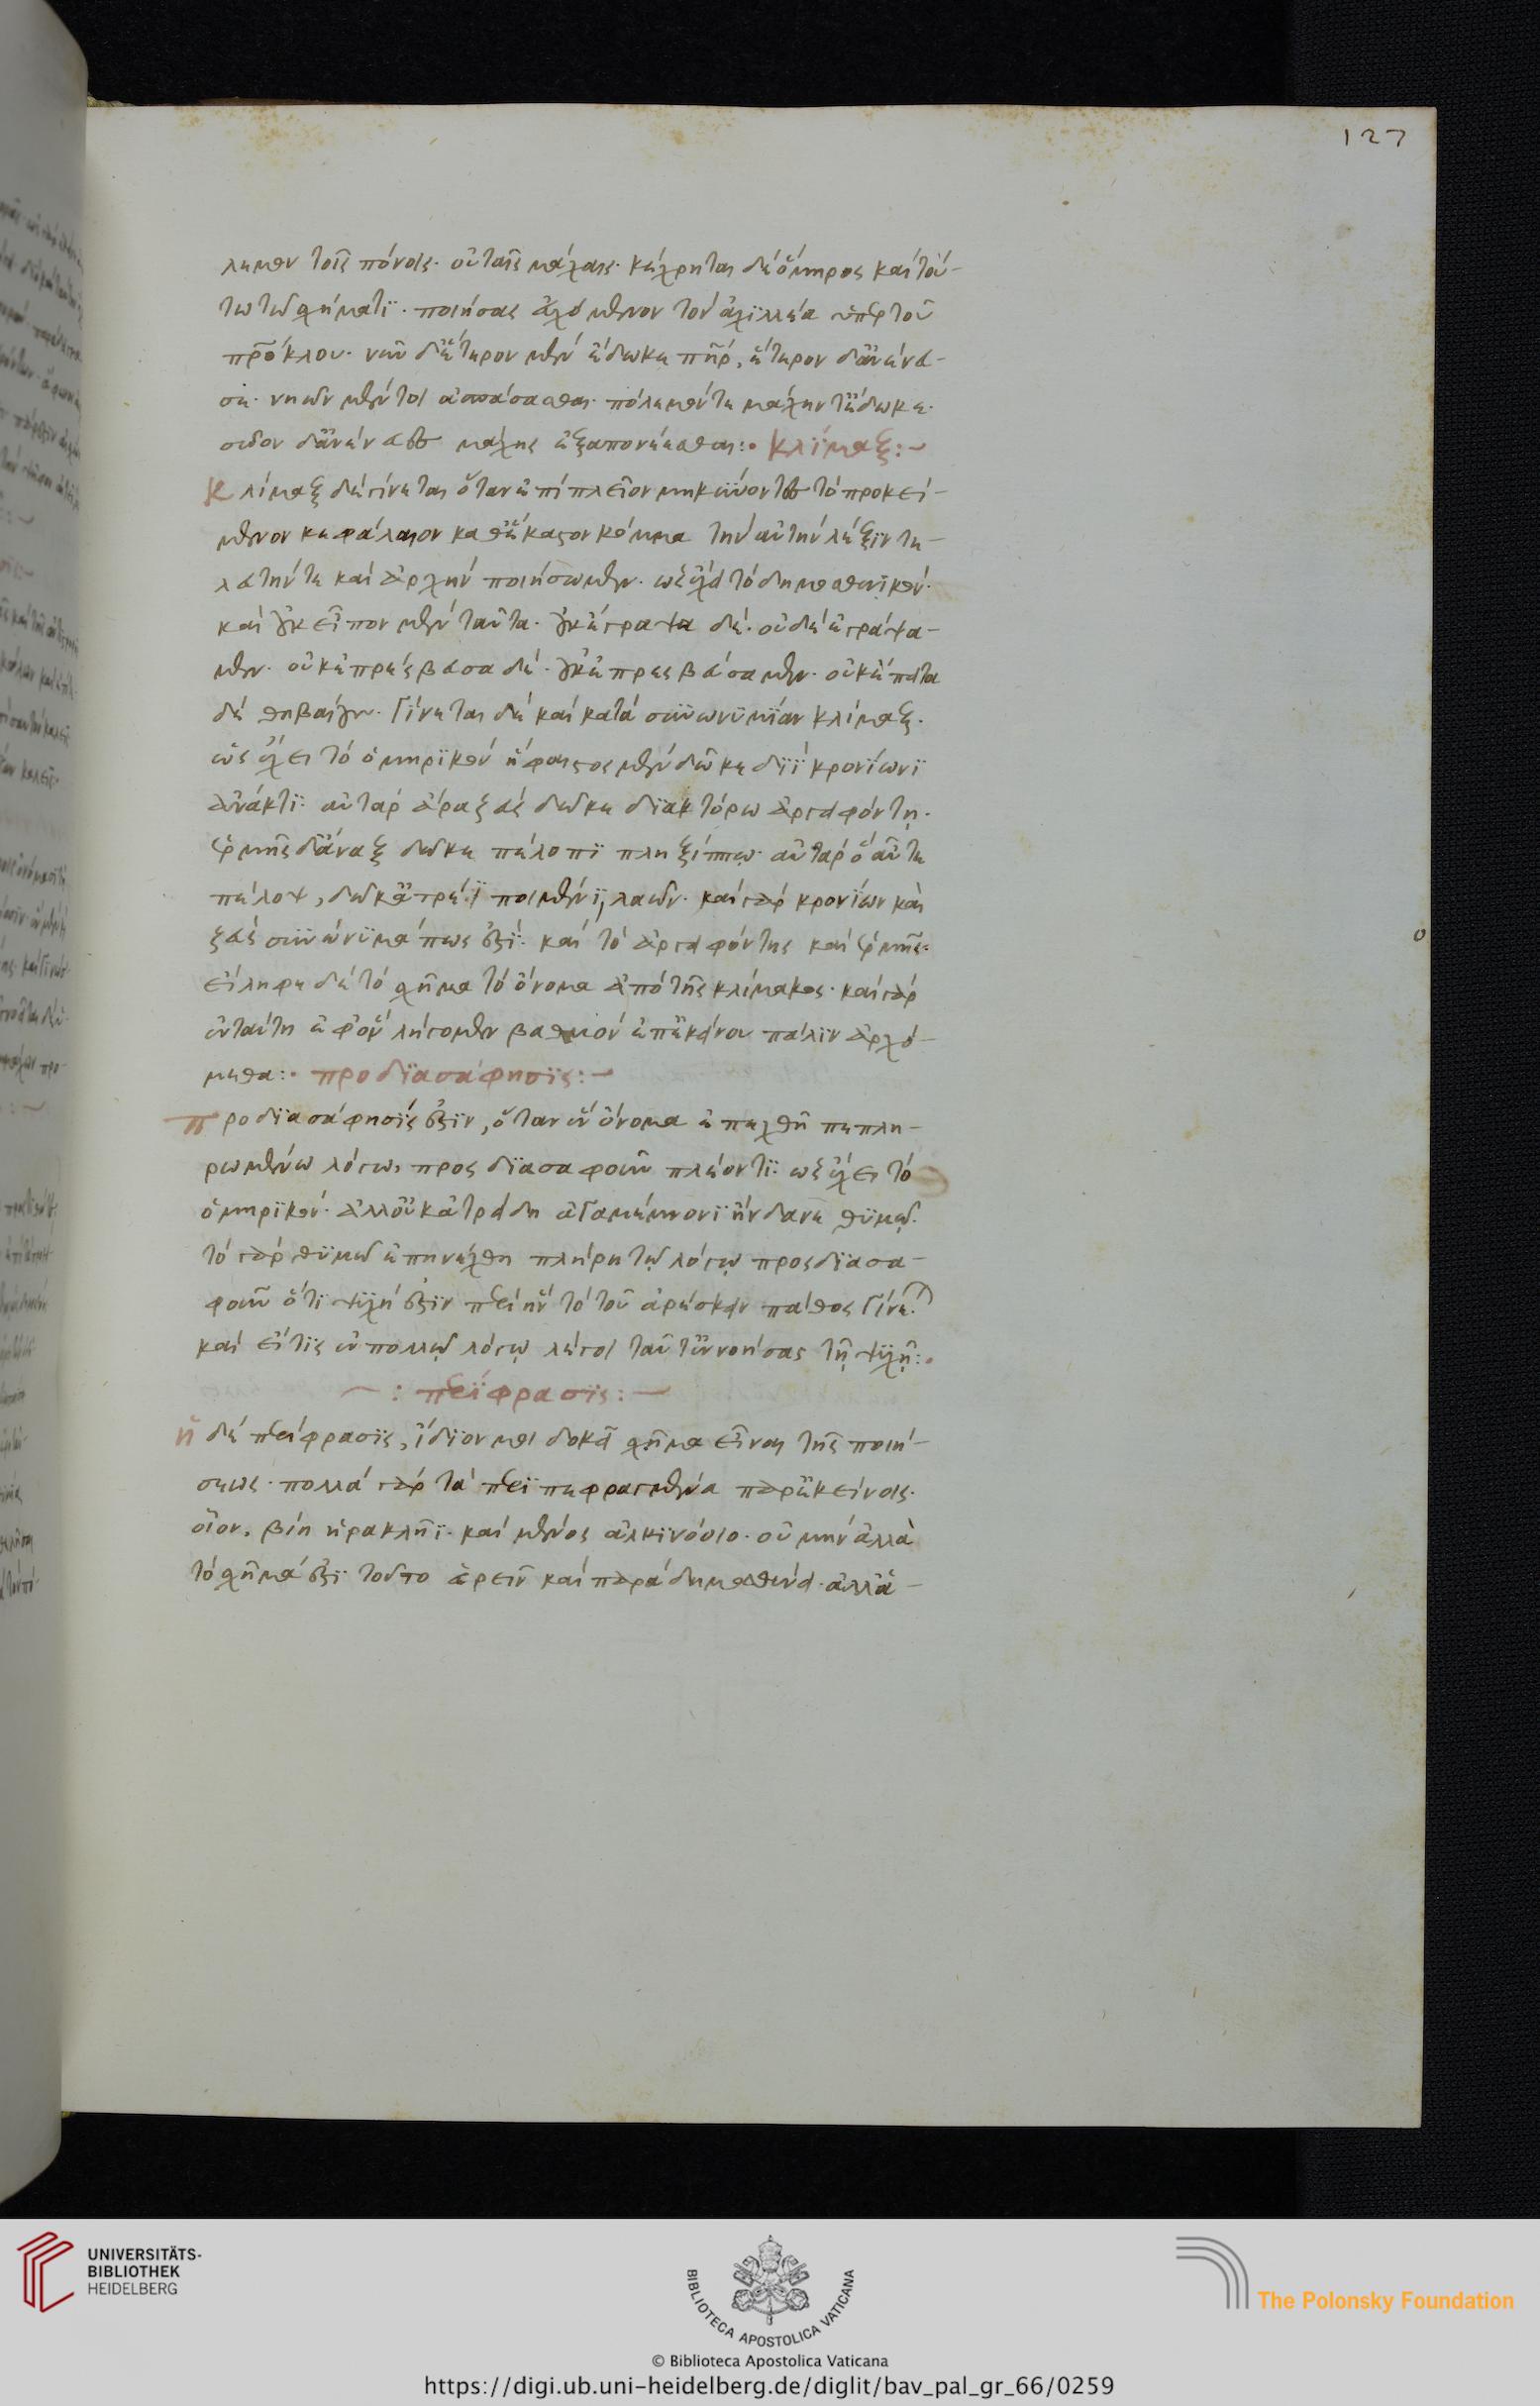 127
λεμεν τοῖς πόνοις· οὐ ταῖς μάχαις· κέχρηται δέ ὅμηρος καί τού-
τω τῶ σχήματϊ· ποιήσας ἀχθόμενον τόν ἀχϊλλέα ὑπέρ τοῦ
πρόκλου· νῦν δ ἕτερον μέν ἔδωκε πῆρ, ἕτερον δ ἀνένευ-
σε· νηῶν μέν τοι ἀπώσασθαι πόλεμόν τε μάχην τ ἔδωκε·
σόον δ ἀνένευσε μάχης ἐξαπονέεσθαι:· κλῖμαξ:~
Κλίμαξ δέ γίνεται ὅταν ἐπί πλεῖον μηκύνοντες τό προκεί-
μενον κεφάλαιον καθ ἕκαστον κόμμα τήν αὐτήν λέξϊν τε-
λευτήν τε καί ἀρχήν ποιήσωμεν· ὡς ἔχει τό δημοσθενϊκόν·
καί οὐκ εἶπον μέν ταῦτα· οὐκ ἔγραψα δέ· οὐδέ ἔγραψα
μέν· οὐκ ἐπρέσβευσα δέ· οὐκ ἐπρέσβευσα μέν· οὐκ ἔπεισα
δέ θηβαίους· Γίνεται δέ καί κατά συνωνϋμίαν κλίμαξ·
ὡς ἔχει τό ὁμηρϊκόν ἥφαιστος μέν δῶκε δϊΐ κρονίωνϊ
ἄνακτϊ· αὐτάρ ἄρα ζεύς δῶκε δϊακτόρω ἀργειφόντη·
ἑρμῆς δ ἄναξ δῶκε πέλοπϊ πληξίππω· αὐτάρ ὅ αὖτε
πέλοψ, δῶκ ἀτρέϊ ποιμένϊ, λαῶν· καί γάρ κρονίων καὶ
ζεύς συνώνϋμά πως ἐστϊ· καί τό ἀργειφόντης καί ἑρμῆς·
εἴληφε δέ τό σχῆμα τό ὄνομα ἀπό τῆς κλίμακος· καί γάρ
ἐνταύτη ἐφ ὅν λήγομεν βαθμόν ἐπ ἐκείνου πάλϊν ἀρχό-
μεθα:· προδϊασάφησϊς:~
προδϊασάφησίς ἐστϊν, ὅταν ἕν ὄνομα ἐπαχθῆ πεπλη-
ρωμένω λόγω, προς δϊασαφοῦν πλέον τϊ· ὡς ἔχει τό
ὁμηρϊκόν· ἀλλ οὐκ ἀτρείδη ἀΓαμέμνονϊ ἥνδανε θϋμῷ·
τό γάρ θϋμῶ ἐπηνέχθη πλήρη τῷ λόγῳ προς δϊασα-
φοῦν ὅτϊ ψϋχή ἐστϊν περί ἥν τό τοῦ ἀρέσκειν πάθος Γίνεται
καί εἴ τϊς ἐν πολλῷ λόγῳ λέγοι ταῦτ ἐννοήσας τῇ ψϋχῇ:·
~: περίφρασϊς:~
ἡ δέ περίφρασϊς, ἴδϊον μοι δοκεῖ σχῆμα εἶναι τῆς ποιή-
σεως· πολλά γάρ τά περϊπεφρασμένα παρ ἐκείνοις·
οἷον, βίη ἡρακλῆϊ· καί μένος ἀλκϊνόοιο· οὐ μήν ἀλλὰ
τό σχῆμά ἐστϊ τοῦτο εὑρεῖν καί παρά δημοσθένει· ἀλλὰ-
UNIVERSITÄTS-
BIBLIOTHEK
HEIDELBERG
BIBLIOTECA APOSTOLICA VATICANA
The Polonsky Foundation
© Biblioteca Apostolica Vaticana
https://digi.ub.uni-heidelberg.de/diglit/bav_pal_gr_66/0259